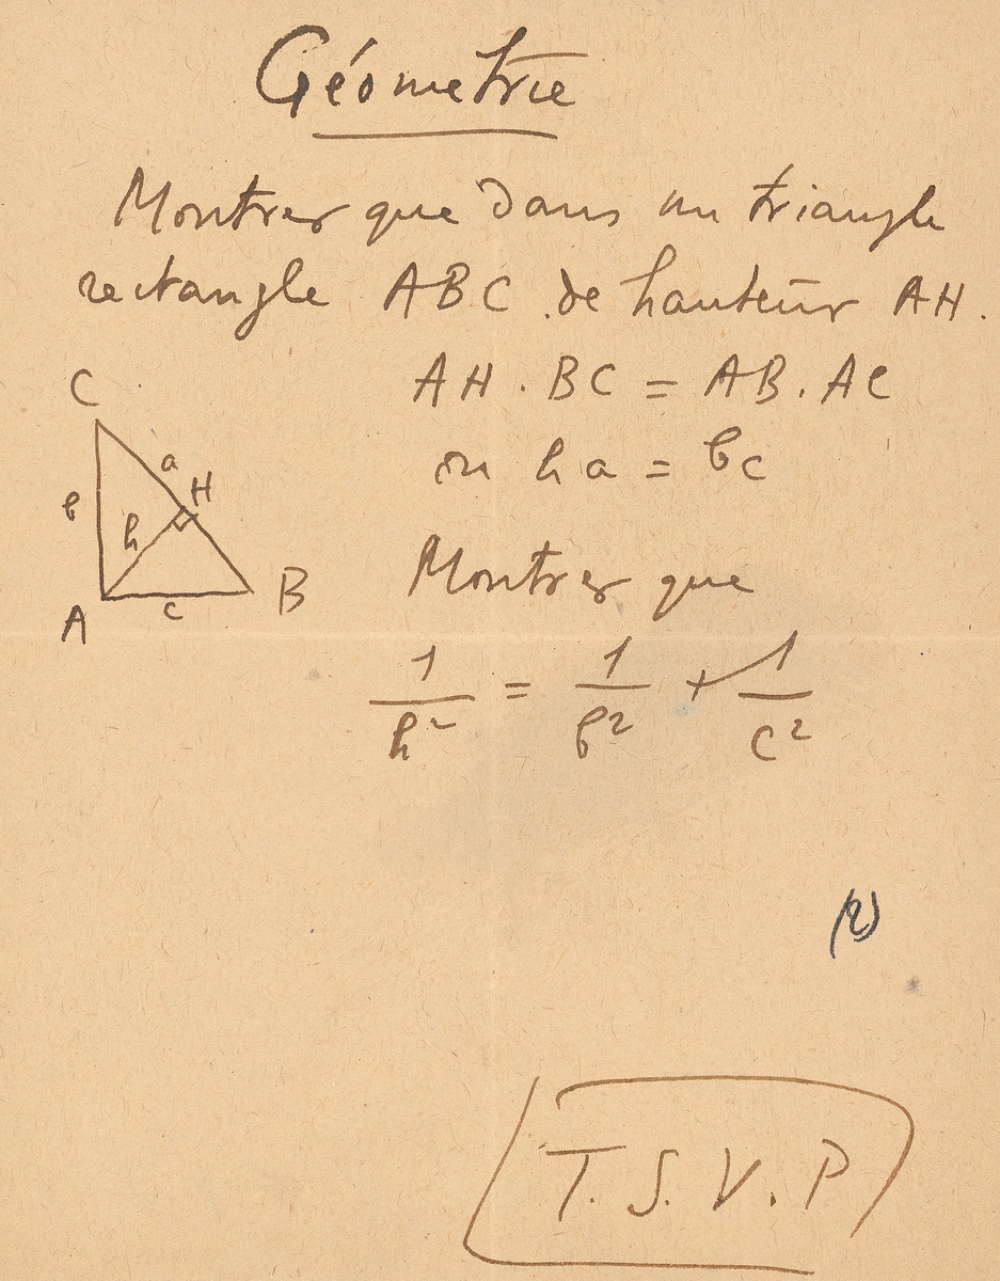 Géométrie
Montrer que dans un triangle
rectangle ABC de hauteur AH.
AH . BC = AB . AC
ou ha = bc
C
a
H
b
h
A
c
B
Montrer que
1/h² = 1/b² + 1/c²
T.S.V.P